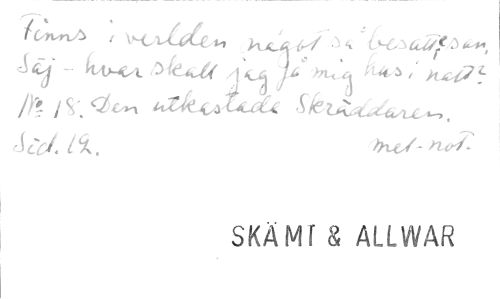 Finns i verlden något så besatt, san,
Säj - hvar skall jag få mig hus i natt?
No 18. Den utkastade Skräddaren.
Sid. 19. mel-not.
SKÄMT & ALLWAR